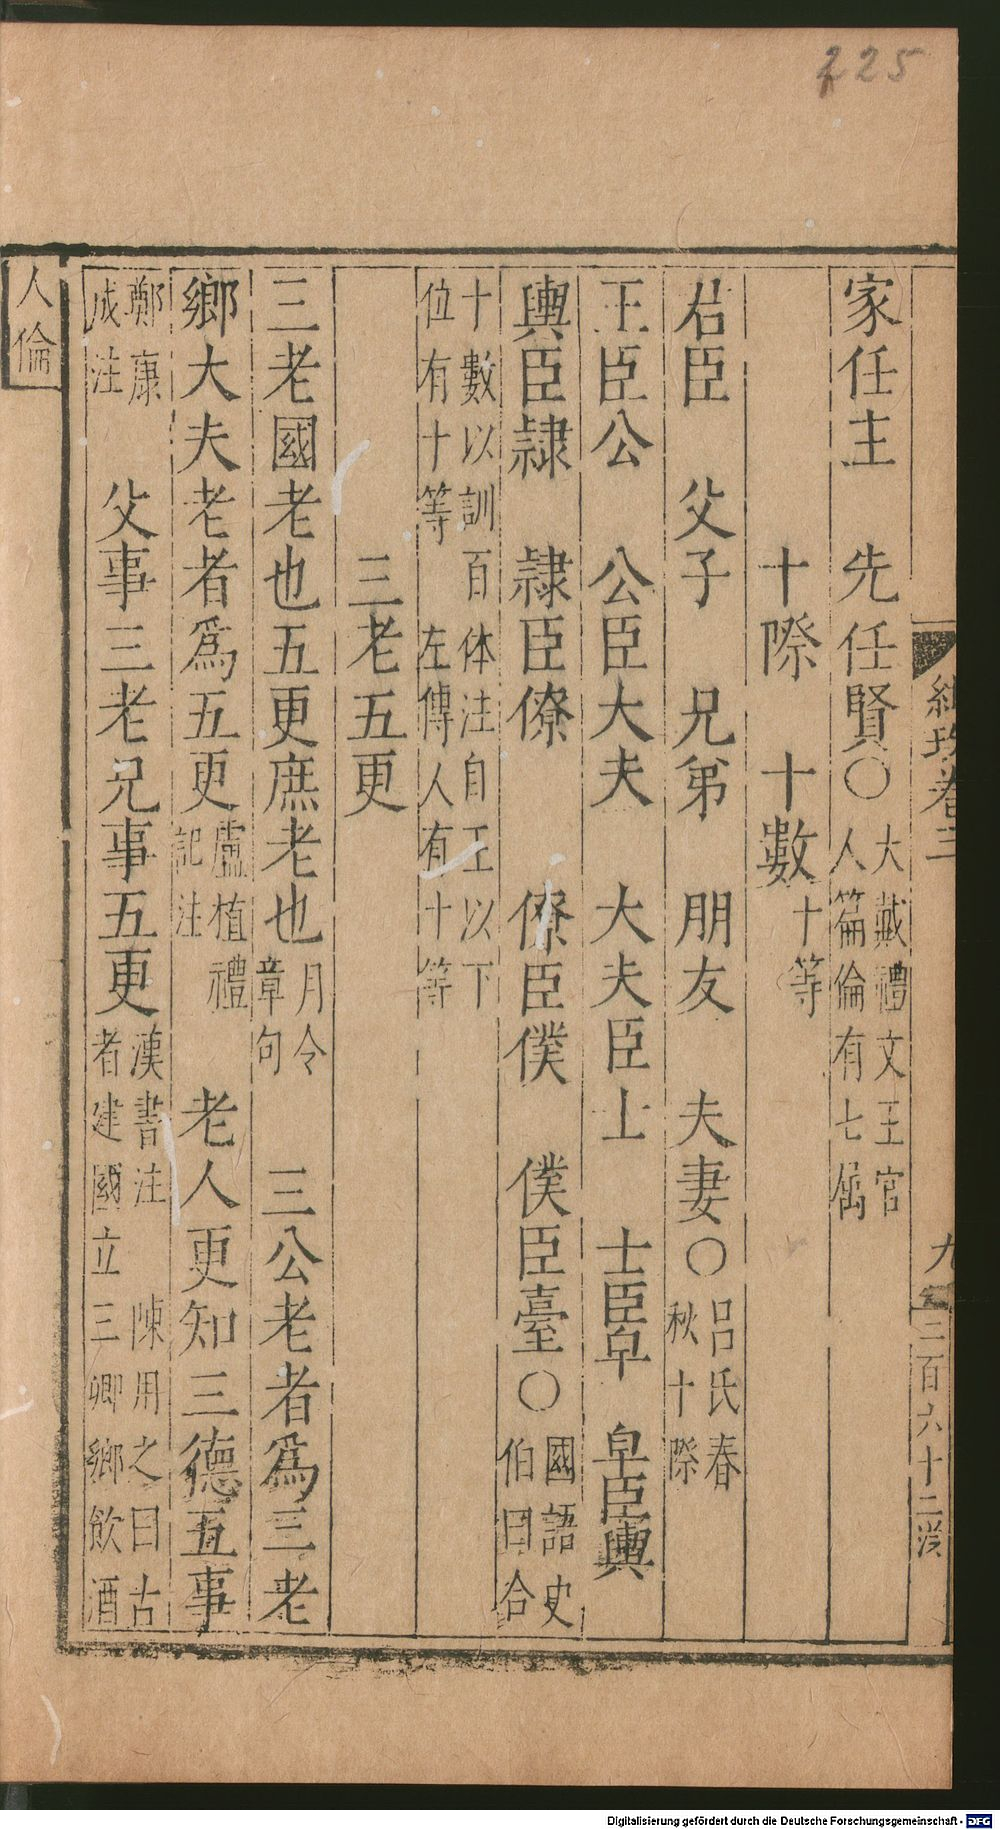 225
家任主　先任賢〇大戴禮文王官人篇倫有七屬
十際　十數十等
君臣　父子　兄弟　朋友　夫妻〇呂氏春秋十際
王臣公　公臣大夫　大夫臣士　士臣皁　皁臣輿
輿臣隷　隷臣僚　僚臣僕　僕臣臺〇國語史伯曰合
十數以訓百体注自王以下位有十等　左傳人有十等
三老五更
三老國老也五更庶老也月令章句　三公老者爲三老
鄉大夫老者爲五更盧植禮記注　老人更知三德五事
鄭康成注　父事三老兄事五更漢書注　陳用之曰古者建國立三卿鄉飲酒
人倫
卷三
九
三百六十二
Digitalisierung gefördert durch die Deutsche Forschungsgemeinschaft - DFG